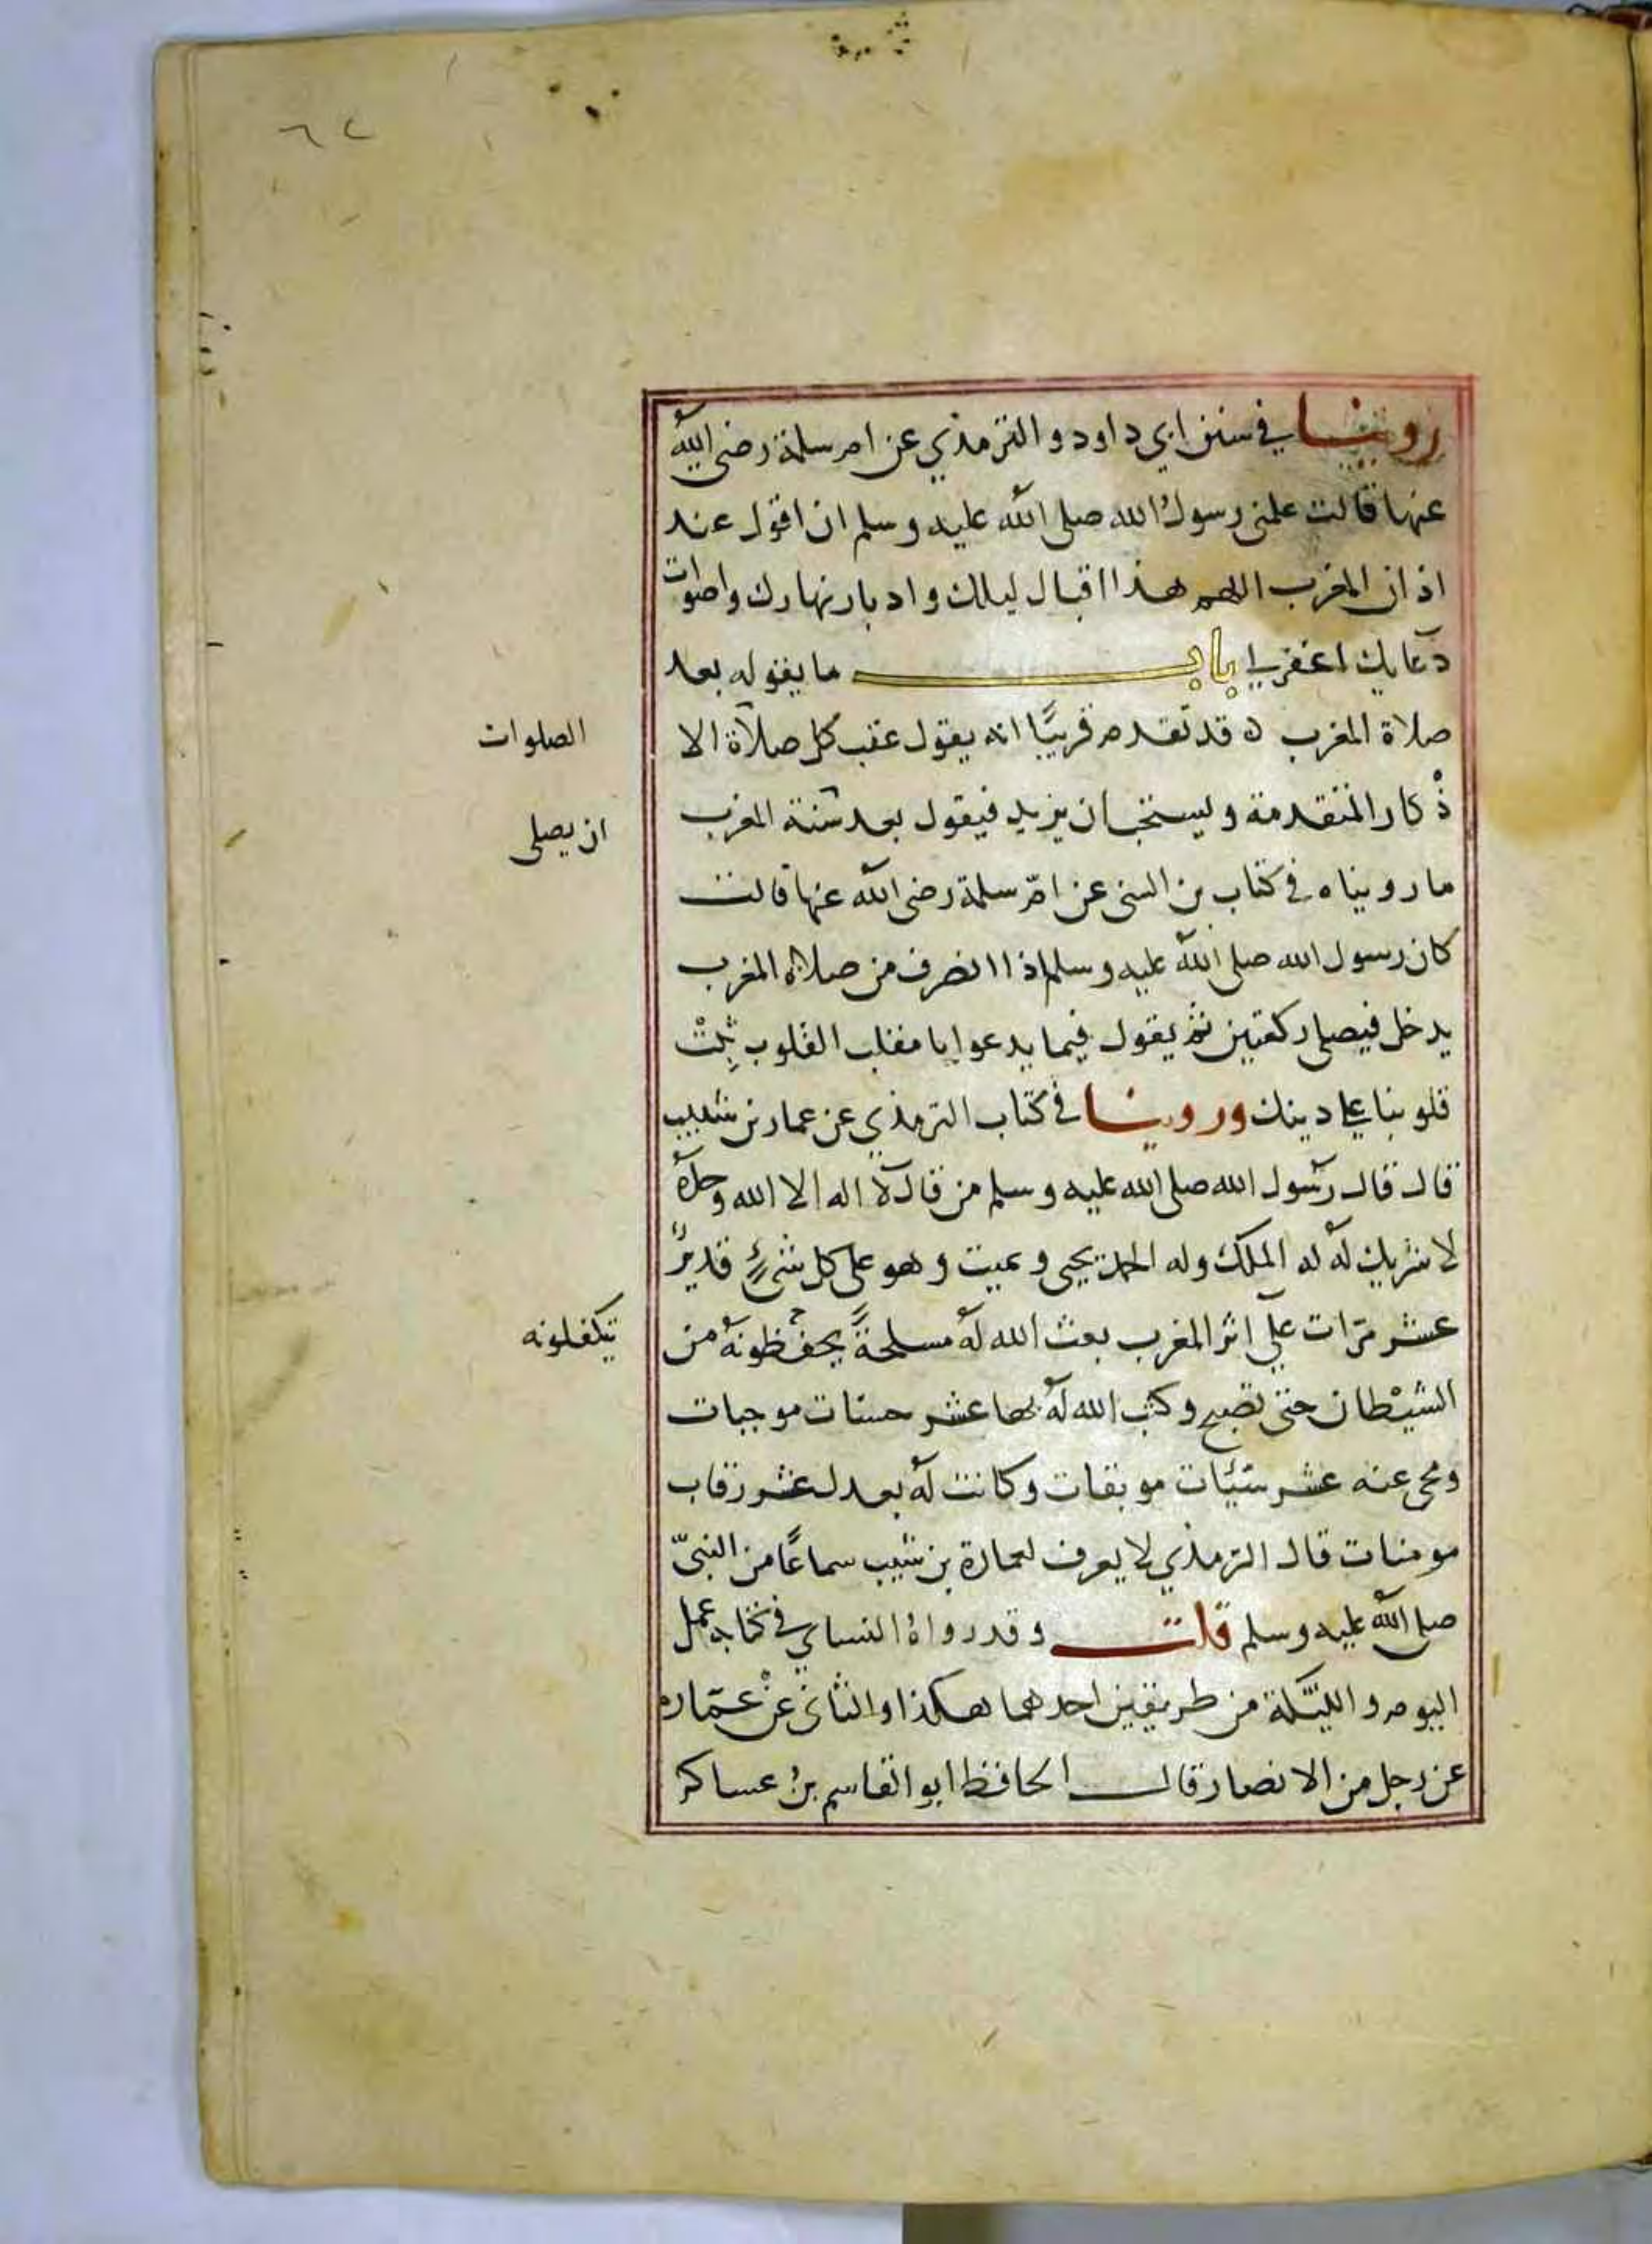 ٦٢
روينا في سنن ابي داود والترمذي عن ام سلمة رضى الله
عنها قالت علمنى رسول الله صلى الله عليه وسلم ان اقول عند
اذان المغرب اللهم هذا اقبال ليلك وادبار نهارك واصوات
دعايك اغفر لي باب ما يقوله بعد
صلاة المغرب ه قد تقدم قريبًا انه يقول عقب كل صلاة الا
الصلوات
ذْكار المتقدمة ويستحب ان يزيد فيقول بعد سنة المغرب
ان يصلى
ما رويناه في كتاب بن السنى عن امّ سلمة رضى الله عنها قالت
كان رسول الله صلى الله عليه وسلم اذا انصرف من صلاة المغرب
يدخل فيصلى ركعتين ثم يقول فيما يدعوا يا مقلب القلوب ثبت
قلوبنا على دينك وروينا في كتاب الترمذي عن عمار بن شبيب
قال قال رسول الله صلى الله عليه وسلم من قال لا اله الا الله وحدهُ
لا شريك لهُ له الملك وله الحمد يحيى ويميت وهو على كل شىءٍ قديرٌ
عشر مرّات على اثر المغرب بعث الله لهُ مسلحةً يحفظونهُ من
يتكفلونه
الشيْطان حتى تصبح وكتب الله لهُ بها عشر حسنات موجبات
ومحى عنه عشر سيّئات موبقات وكانت لهُ بعدل عشر رقاب
مومنات قال الترمذي لا يعرف لعمارة بن شبيب سماعًا من النبىّ
صلى الله عليه وسلم قلت وقد رواهُ النساي في كتابه عمل
اليوم والليّلة من طريقين احدهما هكذا والثانى عنْ عمّاره
عن رجل من الانصار قال الحافظ ابو القاسم بنُ عساكر